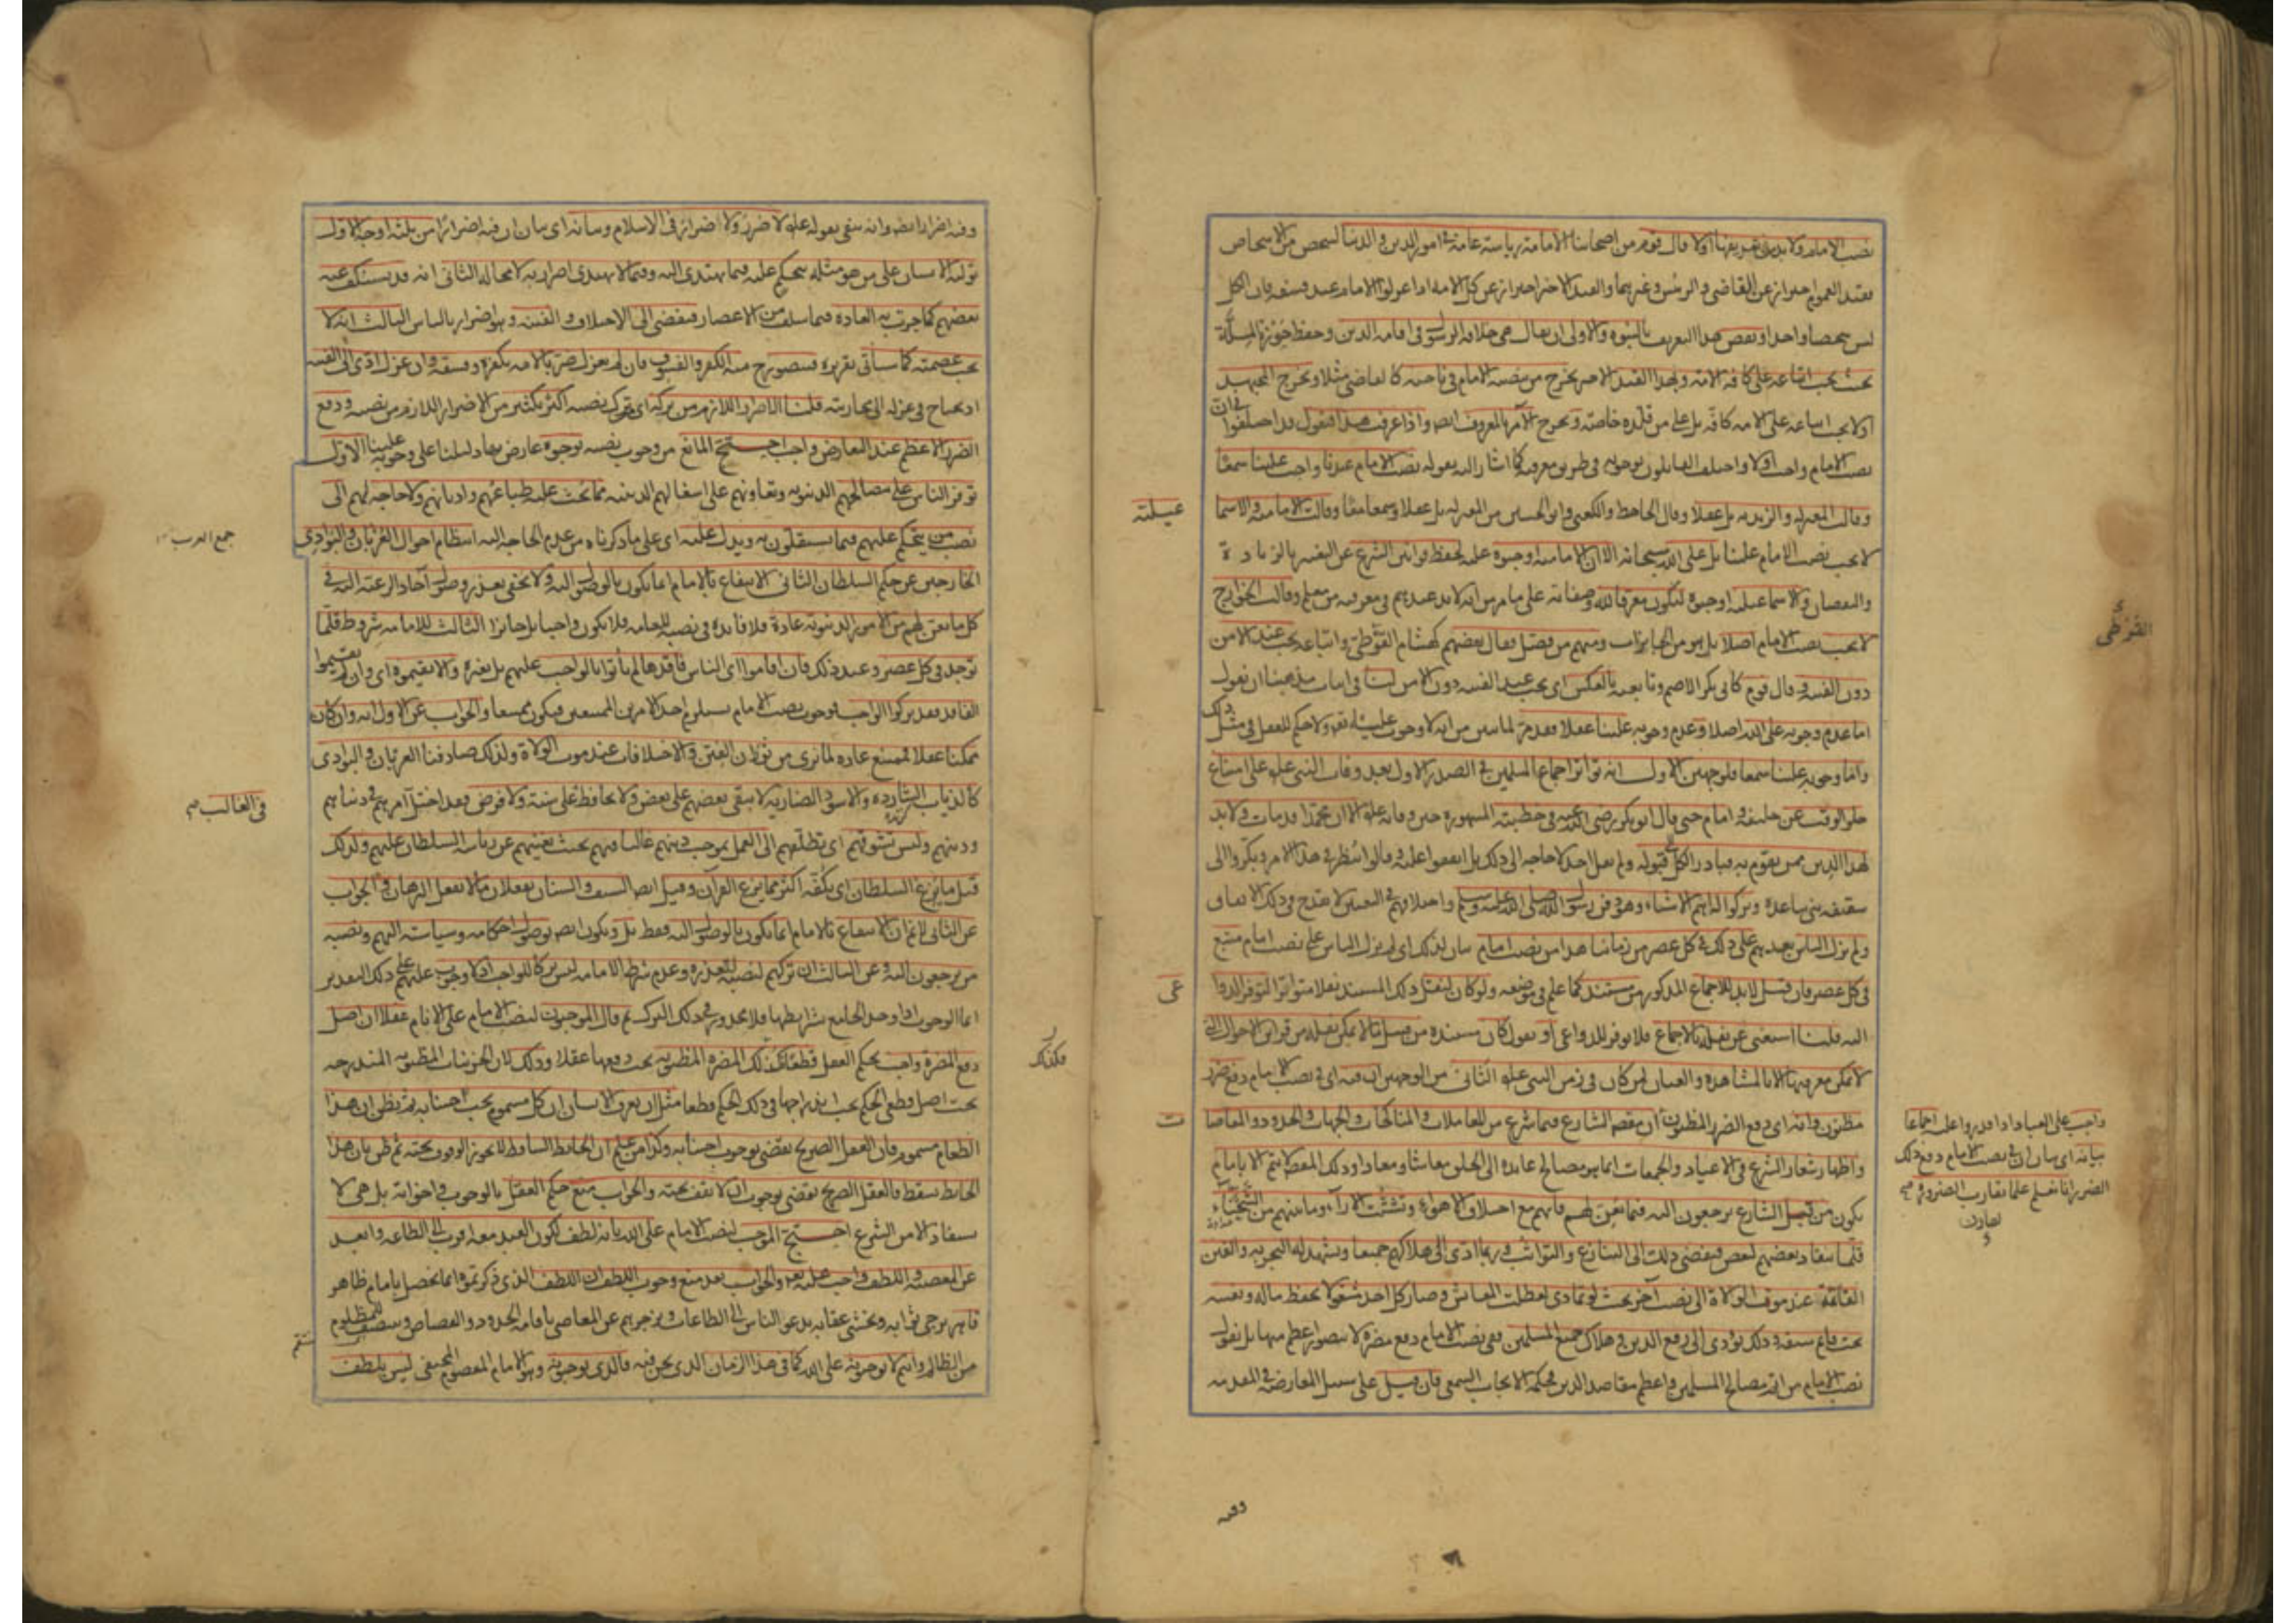 نصب الامام ولا بد من تعريفها اولا قال قوم من اصحابنا الامامة رياسة عامة فى امور الدين والدنيا لشخص من الاشخاص
فقيد العموم احتراز عن القاضى والرئيس وغيرهما والقيد الاخير احتراز عن كل الامة اذا عزلوا الامام عند فسقه فان الكل
ليس شخصا واحدا ونقض هذا التعريف بالنبوة والاولى ان يقال هى خلافة الرسول فى اقامة الدين وحفظ حوزة الملة
بحيث يجب اتباعه على كافة الامة وبهذا القيد الاخير يخرج من ينصبه الامام فى ناحية كالقاضى مثلا ويخرج المجتهد
اذ لا يجب اتباعه على الامة كافة بل على من قلده خاصة ويخرج الآمر بالمعروف ايضا واذا عرفت هذا فنقول قد اختلفوا فى ان
نصب الامام واجب او لا واختلف القائلون بوجوبه فى طريق معرفته كما اشار اليه بقوله نصب الامام عندنا واجب علينا سمعا
وقالت المعتزلة والزيدية بل عقلا وقال الجاحظ والكعبى وابو الحسين من المعتزلة بل عقلا وسمعا معا وقالت الامامية والاسما
عيلية
لا يجب نصب الامام علينا بل على الله سبحانه الا ان الامامية اوجبوه عليه لحفظ قوانين الشرع عن التغيير بالزيادة
والنقصان والاسماعيلية اوجبوه ليكون معرفا لله وصفاته على ما مر من انه لا بد عندهم فى معرفته من معلم وقالت الخوارج
لا يجب نصب الامام اصلا بل هو من الجايزات ومنهم من فصل فقال بعضهم كهشام الفوطى واتباعه يجب عند الامن
دون الفتنة وقال قوم كابى بكر الاصم وتابعيه بالعكس اى يجب عند الفتنة دون الامن لنا فى اثبات مذهبنا ان نقول
اما عدم وجوبه على الله اصلا وعدم وجوبه علينا عقلا فقد مر لما تبين من انه لا وجوب عليه تعالى ولا حكم للعقل فى مثل ذلك
واما وجوبه علينا سمعا فلوجهين الاول انه تواتر اجماع المسلمين فى الصدر الاول بعد وفات النبى عليه على امتناع
خلو الوقت عن خليفة وامام حتى قال ابو بكر رضى الله عنه فى خطبته المشهورة حين وفاته عليه الا ان محمدا قد مات ولا بد
لهذا الدين ممن يقوم به فبادر الكل الى قبوله ولم يقل احد لا حاجة الى ذلك بل اتفقوا عليه وقالوا ننظر فى هذا الامر وبكروا الى
سقيفة بنى ساعدة وتركوا له اهم الاشياء وهو دفن رسول الله صلى الله عليه وسلم واختلافهم فى التعيين لا يقدح فى ذلك الاتفاق
ولم يزل الناس بعدهم على ذلك فى كل عصر من زماننا هذا من نصب امام بيان لذلك اى لم يزل الناس على نصب امام متبع
فى كل عصر فان قيل لا بد للاجماع المذكور من مستند كما علم فى موضعه ولو كان لنقل ذلك المستند نقلا متواترا لتوفر الدوا
عى
اليه قلنا استغنى عن نقله بالاجماع فلا توفر للدواعى او نقول كان مستنده من قبيل ما لا يمكن نقله من قرائن الاحوال التى
لا يمكن معرفتها الا بالمشاهدة والعيان لمن كان فى زمن النبى عليه الثانى من الوجهين ان فيه اى فى نصب الامام دفع ضرر
مظنون وانه اى دفع الضرر المظنون ان مقصد الشارع فيما شرع من المعاملات والمناكحات والجهات والحدود والمقاصا
ت
واجب على العباد اذا قدروا عليه اجماعا
بيانه اى بيان ان فى نصب الامام دفع ذلك
الضرر انا نعلم علما يقارب الضرورى صح
واظهار شعار الشرع فى الاعياد والجمعات انما هو مصالح عائدة الى الخلق معاشا ومعادا وذلك المقصد لا يتم الا بامام
يكون من قبل الشارع يرجعون اليه فيما يعن لهم فانهم مع اختلاف الاهواء وتشتت الآراء وما بينهم من الشحناء
قلما ينقاد بعضهم لبعض فيفضى ذلك الى التنازع والتواثب وربما ادى الى هلاكهم جميعا ويشهد له التجربة والفتن
القائمة عند موت الولاة الى نصب آخر بحيث لو تمادى لعطلت المعايش وصار كل احد مشغولا بحفظ ماله ونفسه
تحت قائم سيفه وذلك يؤدى الى رفع الدين وهلاك جميع المسلمين ففى نصب الامام دفع مضرة لا يتصور اعظم منها بل نقول
نصب الامام من اتم مصالح المسلمين واعظم مقاصد الدين فحكمه الايجاب السمعى فان قيل على سبيل المعارضة فى المقدمة
وفيه
وفيه اضرار ايضا وانه منفى بقوله عليه لا ضرر ولا اضرار فى الاسلام وبيانه اى بيان ان فيه اضرارا من ثلثة اوجه الاول
تولية الانسان على من هو مثله ليحكم عليه فيما يهتدى اليه وفيما لا يهتدى اضرار به لا محالة الثانى انه قد يستنكف عنه
بعضهم كما جرت به العادة فيما سلف من الاعصار فيفضى الى الاختلاف والفتنة وهو اضرار بالناس الثالث انه لا
يجب عصمته كما سيأتى تقريره فيتصور ح منه الكفر والفسوق فان لم يعزل ضر بالامة بكفره وفسقه وان عزل ادى الى الفتنة
اذ يحتاج فى عزله الى محاربته قلنا الاضرار اللازم من تركه اى ترك نصبه اكثر بكثير من الاضرار اللازم من نصبه ودفع
الضرر الاعظم عند التعارض واجب احتج المانع من وجوب نصبه بوجوه عارض بها دليلنا على وجوبه علينا الاول
توفر الناس على مصالحهم الدنيوية وتعاونهم على اشغالهم الدينية مما يحث عليه طباعهم واديانهم ولا حاجة لهم الى
نصب من يتحكم عليهم فيما يستقلون به ويدل عليه اى على ما ذكرناه من عدم الحاجة اليه انتظام احوال العربان والبوادى
جمع العرب
الخارجين عن حكم السلطان الثانى الانتفاع بالامام انما يكون بالوصول اليه ولا يخفى تعذر وصول آحاد الرعية اليه فى
كل ما يعن لهم من الامور الدنيوية عادة فلا فائدة فى نصبه للعامة فلا يكون واجبا بل جائزا الثالث للامامة شروط قلما
توجد فى كل عصر وعند ذلك فان اقاموا اى الناس فاقدها لم يأتوا بالواجب عليهم بل بغيره والا يقيموه اى وان لم يقيموا
الفاقد فقد تركوا الواجب فوجوب نصب الامام يستلزم احد الامرين الممتنعين فيكون ممتنعا والجواب عن الاول انه وان كان
ممكنا عقلا لممتنع عادة لما نرى من ثوران الفتن والاختلافات عند موت الولاة ولذلك صادفنا العربان والبوادى
كالذئاب الشاردة والاسود الضارية لا يبقى بعضهم على بعض ولا يحافظ على سنة ولا فرض فقد اختل امرهم فى دنياهم
فى الغالب صح
ودينهم وليس تشوقهم اى تطلعهم الى العمل بموجب دينهم غالبا فيهم بحيث يغنيهم عن رياسة السلطان عليهم ولذلك
قيل ما يزع السلطان اى يكفه اكثر مما يزع القرآن وقيل ايضا السيف والسنان يفعلان ما لا يفعل البرهان والجواب
عن الثانى لا نم ان الانتفاع بالامام انما يكون بالوصول اليه فقط بل ويكون ايضا بوصول احكامه وسياسته اليهم ونصبه
من يرجعون اليه وعن الثالث ان تركهم لنصبه لتعذره وعدم شرط الامامة ليس تركا للواجب اذ لا وجوب عليهم على ذلك التقدير
انما الوجوب اذا وجد الجامع لشرائطها فلا محذور فى ذلك الترك ثم قال الموجبون لنصب الامام على الانام عقلا ان اصل
دفع المضرة واجب بحكم العقل قطعا فكذلك المضرة المظنونة يجب دفعها عقلا وذلك لان الجزئيات المظنونة المندرجة
فكذلك
تحت اصل قطعى الحكم يجب اندراجها فى ذلك الحكم قطعا مثل ان يعرف الانسان ان كل مسموم يجب اجتنابه ثم يظن ان هذا
الطعام مسموم فان العقل الصريح يقضى بوجوب اجتنابه وكذا من علم ان الحائط الساقط لا يجوز الوقوف تحته ثم ظن بان هذا
الحائط يسقط فالعقل الصريح يقضى بوجوب ان لا يقف تحته والجواب منع حكم العقل بالوجوب واخواته بل هى لا
تستفاد الا من الشرع احتج الموجب لنصب الامام على الله بانه لطف لكون العبد معه اقرب الى الطاعة وابعد
عن المعصية واللطف واجب عليه تعالى والجواب بعد منع وجوب اللطف ان اللطف الذى ذكرتموه انما يحصل بامام ظاهر
قاهر يرجى ثوابه ويخشى عقابه يدعو الناس الى الطاعات ويزجرهم عن المعاصى باقامة الحدود والقصاص وينتصف للمظلوم
من الظالم وانتم لا توجبونه على الله كما فى هذا الزمان الذى نحن فيه فالذى توجبونه وهو الامام المعصوم المختفى ليس بلطف